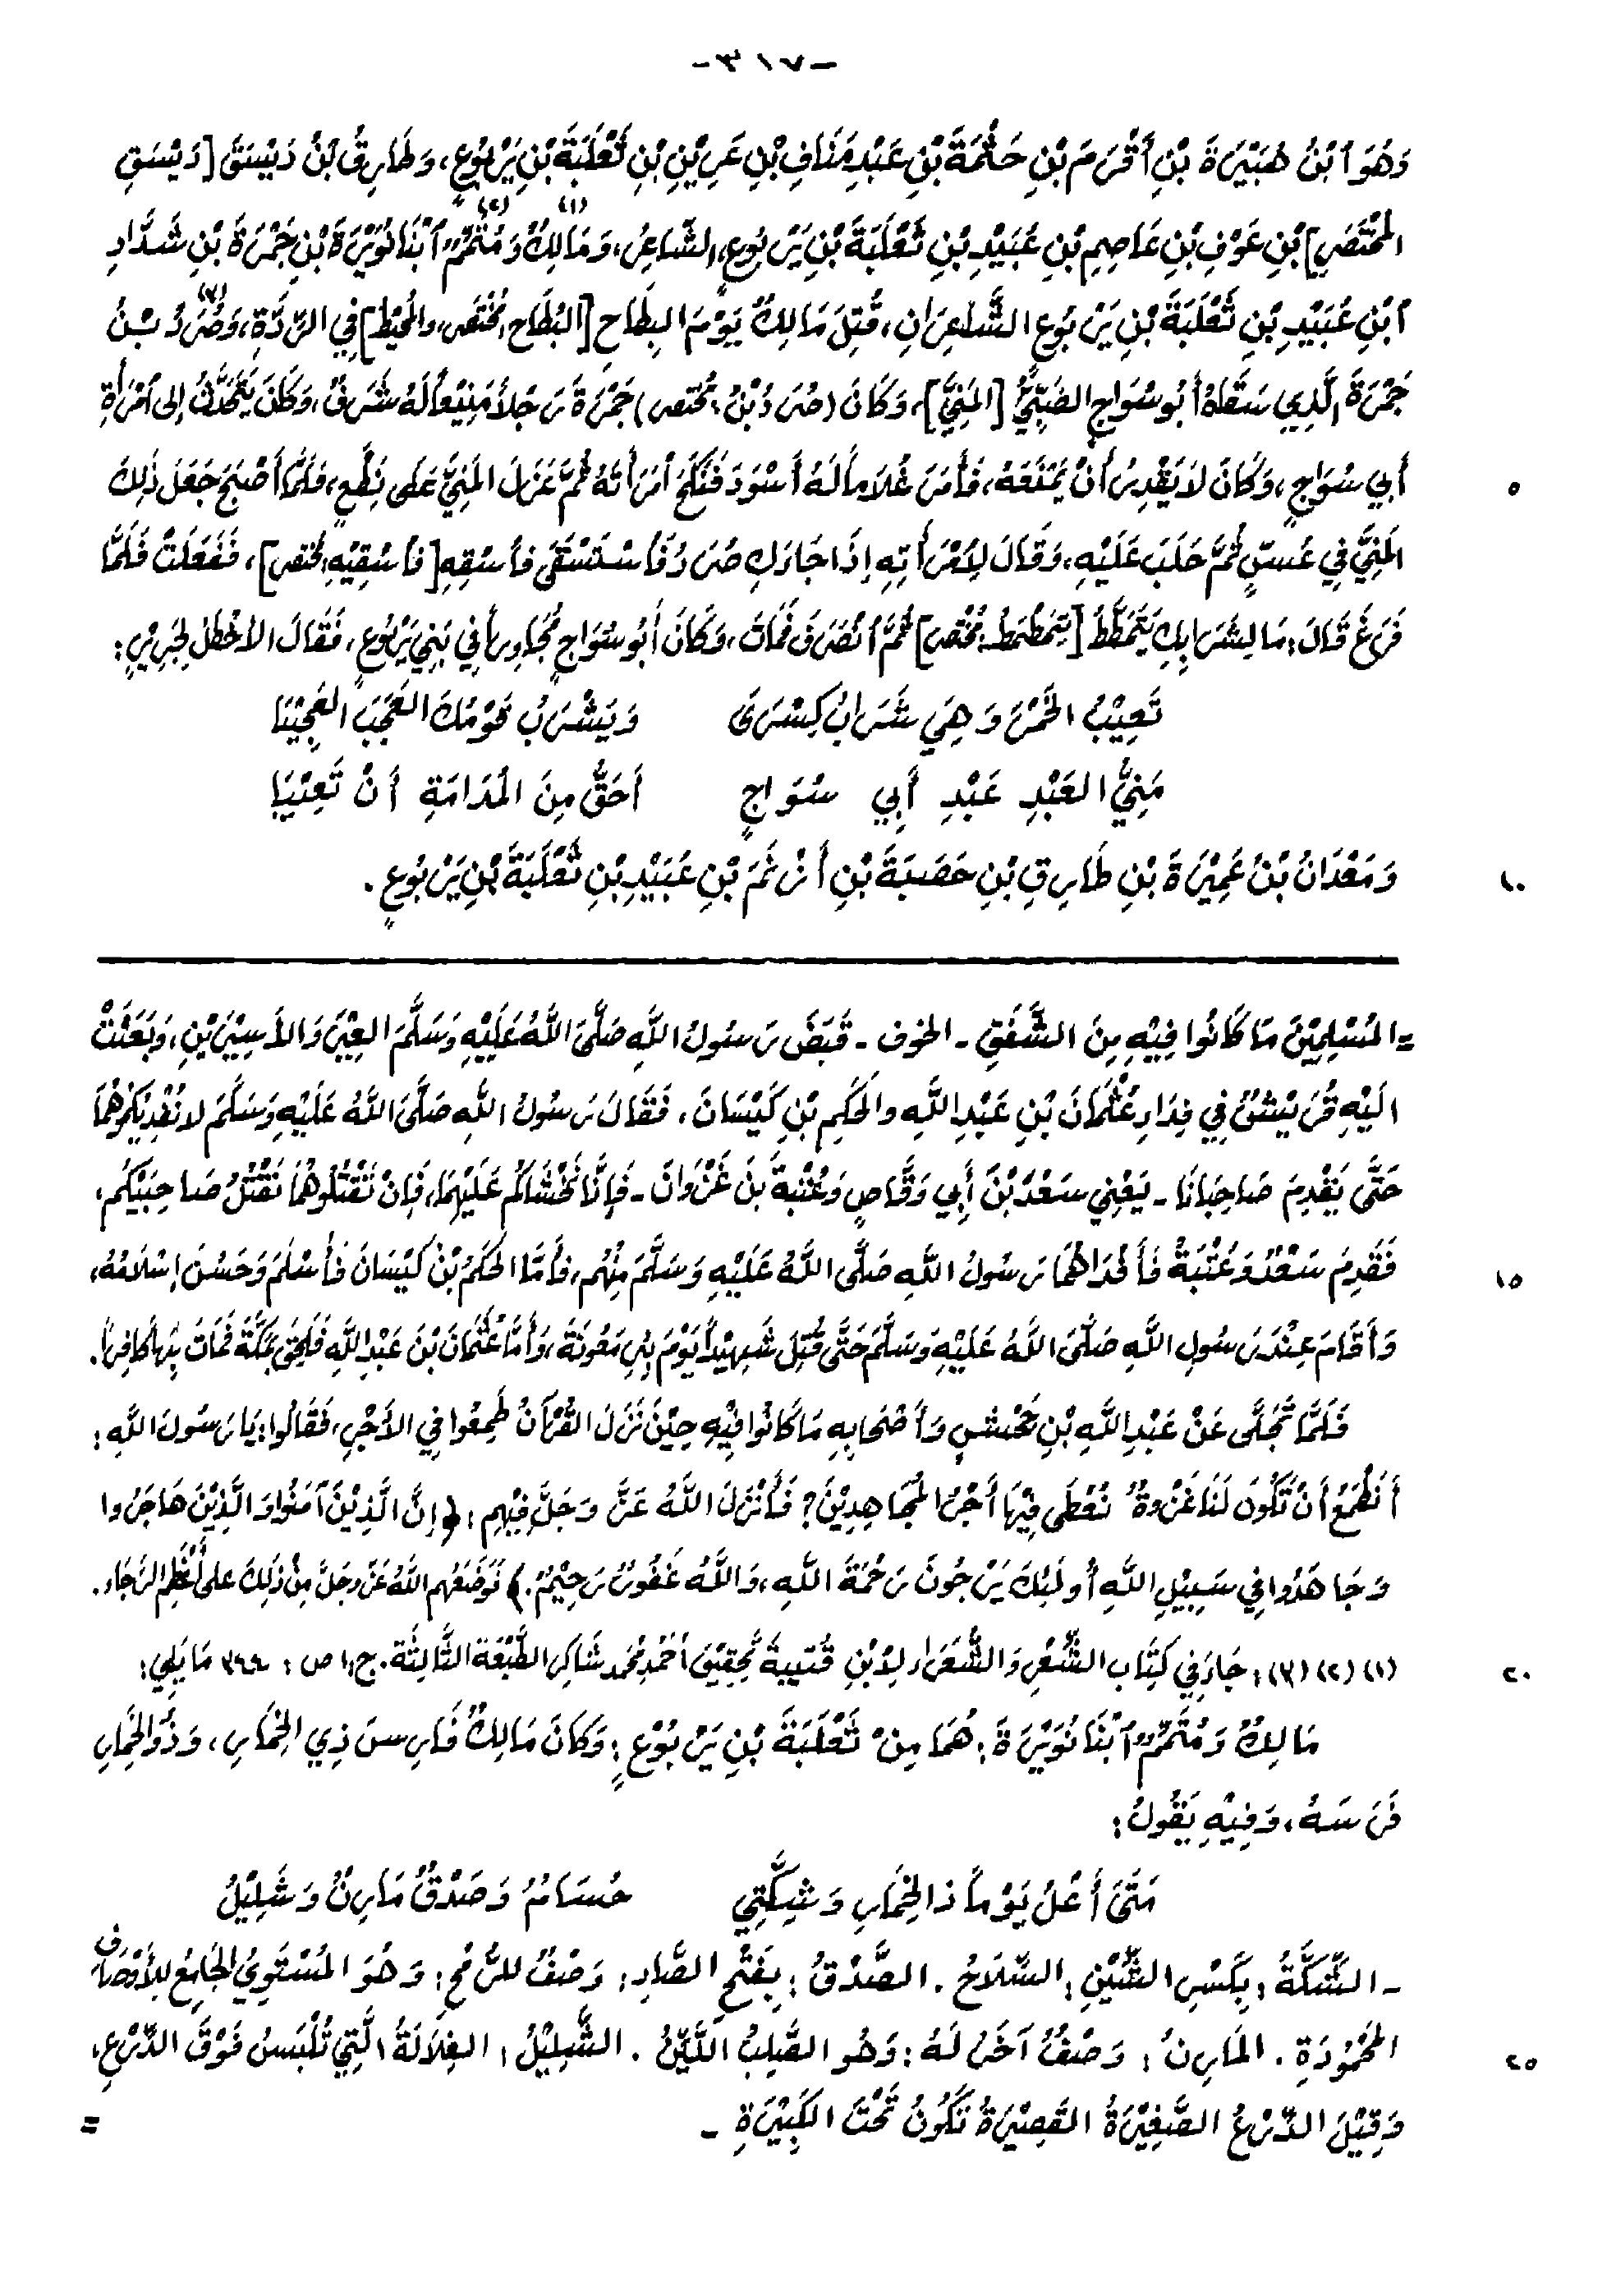 -٣١٧-
وَهُوَ ٱبْنُ هُبَيْرَةَ بْنِ أَقْرَمَ بْنِ حَثْمَةَ بْنِ عَبْدِ مَنَافِ بْنِ عَرِيْنِ بْنِ ثَعْلَبَةَ بْنِ يَرْبُوعٍ، وَطَارِقُ بْنُ دَيْسَقَ [دَيْسَقِ
المُخْتَصَرِ] بْنِ عَوْفِ بْنِ عَاصِمِ بْنِ عُبَيْدِ بْنِ ثَعْلَبَةَ بْنِ يَرْبُوعٍ، الشَّاعِرُ، وَمَالِكٌ(١) وَمُتَمِّمٌ(٢) ٱبْنَا نُوَيْرَةَ بْنِ جَمْرَةَ بْنِ شَدَّادِ
ٱبْنِ عُبَيْدِ بْنِ ثَعْلَبَةَ بْنِ يَرْبُوعٍ الشَّاعِرَانِ، قُتِلَ مَالِكٌ يَوْمَ البِطَاحِ [البُطَاحِ، مُخْتَصر، والمُحِيْط] فِي الرِّدَّةِ، وَصُرَدُ(٣) بْنُ
جَمْرَةَ الَّذِي سَقَاهُ أَبُو سُوَاجٍ الضَّبِّيُّ [المَنِيَّ]، وَكَانَ (صُرَدُ بْنُ: مُخْتصر) جَمْرَةَ رَجُلاً مَنِيْعاً لَهُ شَرَفٌ، وَكَانَ يَتَحَدَّثُ إِلى ٱمْرَأَةِ
أَبِي سُوَاجٍ، وَكَانَ لاَ يَقْدِرُ أَنْ يَمْنَعَهُ، فَأَمَرَ غُلاَماً لَهُ أَسْوَدَ فَنَكَحَ ٱمْرَأَتَهُ ثُمَّ عَزَلَ المَنِيَّ عَلَى نِطْعٍ، فَلَمَّا أَصْبَحَ جَعَلَ ذٰلِكَ
٥
المَنِيَّ فِي عُسٍّ ثُمَّ حَلَبَ عَلَيْهِ، وَقَالَ لِٱمْرَأَتِهِ إِذَا جَاءَكِ صُرَدُ فَٱسْتَسْقَى فٱسْقِهِ [فٱسْقِيْهِ مُختصر]، فَفَعَلَتْ فَلَمَّا
فَرَغَ قَالَ: مَا لِشَرَابِكِ يَتَمَطَّطُ [يَتَمَطْمَطُ: مُخْتصر] ثُمَّ ٱنْصَرَفَ فَمَاتَ، وَكَانَ أَبُو سُوَاجٍ مُجَاوِراً فِي بَنِي يَرْبُوعٍ، فَقَالَ الأَخْطَلُ لِجَرِيْرٍ:
تَعِيْبُ الخَمْرَ وَهِيَ شَرَابُ كِسْرَى وَيَشْرَبُ قَوْمُكَ العَجَبَ العَجِيْبَا
مَنِيَّ العَبْدِ عَبْدِ أَبِي سُوَاجٍ أَحَقُّ مِنَ المُدَامَةِ أَنْ تَعِيْبَا
وَمَعْدَانُ بْنُ عَمِيْرَةَ بْنِ طَارِقِ بْنِ حَصَبَةَ بْنِ أَزْنَمَ بْنِ عُبَيْدِ بْنِ ثَعْلَبَةَ بْنِ يَرْبُوعٍ.
١٠
=المُسْلِمِيْنَ مَا كَانُوا فِيْهِ مِنَ الشَّفَقِ - الخوف - قَبَضَ رَسُولُ اللَّهِ صَلَّى اللَّهُ عَلَيْهِ وَسَلَّمَ العِيْرَ وَالأَسِيْرَيْنِ، وَبَعَثَتْ
الَيْهِ قُرَيْشٌ فِي فِدَاءِ عُثْمَانَ بْنِ عَبْدِ اللَّهِ وَالحَكَمِ بْنِ كَيْسَانَ، فَقَالَ رَسُولُ اللَّهِ صَلَّى اللَّهُ عَلَيْهِ وَسَلَّمَ لا نُفْدِيْكُمُوهُمَا
حَتَّى يَقْدِمَ صَاحِبَانَا - يَعْنِي سَعْدَ بْنَ أَبِي وَقَّاصٍ وَعُتْبَةَ بنَ غَزْوَانَ - فَإِنَّا نَخْشَاكُم عَلَيْهِمَا، فَإِنْ تَقْتُلُوهُمَا نَقْتُلُ صَاحِبَيْكُم،
فَقَدِمَ سَعْدٌ وَعُتْبَةُ فَأَفْدَاهُمَا رَسُولُ اللَّهِ صَلَّى اللَّهُ عَلَيْهِ وَسَلَّمَ مِنْهُم، فَأَمَّا الحَكَمُ بْنُ كَيْسَانَ فَأَسْلَمَ وَحَسُنَ إِسْلاَمُهُ،
١٥
وَأَقَامَ عِنْدَ رَسُولِ اللَّهِ صَلَّى اللَّهُ عَلَيْهِ وَسَلَّمَ حَتَّى قُتِلَ شَهِيْداً يَوْمَ بِئْرِ مَعُونَةَ، وَأَمَّا عُثْمَانَ بْنَ عَبْدِ اللَّهِ فَلَحِقَ بِمَكَّةَ فَمَاتَ بِهَا كَافِراً.
فَلَمَّا تَجَلَّى عَنْ عَبْدِ اللَّهِ بْنِ جَحْشٍ وَأَصْحَابِهِ مَا كَانُوا فِيْهِ حِيْنَ نَزَلَ القُرْآنُ طَمِعُوا فِي الأَجْرِ، فَقَالُوا: يَا رَسُولَ اللَّهِ:
أَنَطْمَعُ أَنْ تَكُونَ لَنَا غَزْوَةٌ نُعْطَى فِيْهَا أَجْرَ المُجَاهِدِيْنَ؟ فَأَنْزَلَ اللَّهُ عَزَّ وَجَلَّ فِيْهِم: ﴿إِنَّ الَّذِيْنَ آمَنُوا وَالَّذِيْنَ هَاجَرُوا
وَجَاهَدُوا فِي سَبِيْلِ اللَّهِ أُولَئِكَ يَرْجُونَ رَحْمَةَ اللَّهِ، وَاللَّهُ غَفُورٌ رَحِيْمٌ.﴾ فَوَضَعَهُم اللَّهُ عَزَّ وجَلَّ مِنْ ذَلِكَ على أَعْظَمِ الرَجَاءِ.
(١) (٢) (٣): جَاءَ فِي كِتَابِ الشِّعْرِ وَالشُّعَرَاءِ لِابْنِ قُتَيبةَ تَحْقِيْقَ أَحْمَدِ مُحْمَد شَاكِرِ الطَّبْعَة الثَّالِثَة. ج١ ص: ٣٤٤ مَا يَلِي:
٢٠
مَالِكٌ وَمُتَمِّمٌ ٱبْنَا نُوَيْرَةَ: هُمَا مِنْ ثَعْلَبَةَ بْنِ يَرْبُوْعٍ؛ وَكَانَ مَالِكٌ فَارِسَ ذِي الخِمَارِ، وَذُو الخِمَارِ
فَرَسَهُ، وَفِيْهِ يَقُولُ:
مَتَى أَعْلُ يَوْماً ذا الخِمَارِ وَشِكَّتِي حُسَامٌ وَصَدْقٌ مَارِنٌ وَشَلِيْلُ
- الشِّكَّةُ: بِكَسْرِ الشِّيْنِ: السِّلاَحُ. الصَّدْقُ: بِفَتْحِ الصَّادِ: وَصْفٌ للرُّمْحِ: وَهُوَ المُسْتَوِيُ الجَامِعُ لِلأَوْصَافِ
المَحْمُوْدَةِ. المَارِنُ: وَصْفٌ آخَرُ لَهُ: وَهُو الصَّلِبُ اللَّيِّنُ. الشَّلِيْلُ: الغِلاَلَةُ الَّتِي تُلْبَسُ فَوْقَ الدِّرْعِ،
٢٥
وَقِيْلَ الدِّرْعُ الصَّغِيْرَةُ القَصِيْرَةُ تَكُونُ تَحْتَ الكَبِيْرَةِ -
=